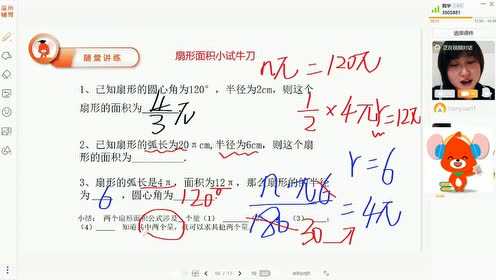 随堂讲练
扇形面积小试牛刀
nπ=120π
1、已知扇形的圆心角为120°，半径为2cm，则这个
扇形的面积为 4/3 π
1/2 ×4πr=12π
2、已知扇形的弧长为20πcm,半径为6cm，则这个扇
形的面积为______.
r=6
3、扇形的弧长是4π，面积为12π，那么扇形的
为 6 ，圆心角为 120°
n·π6/180=4π
30
小结：两个扇形面积公式涉及 个量（1）______（3）____；
（4）____ 知道其中两个量，就可以求其他两个量
数学
3605881
选择课件
正在视频对话
10 / 17